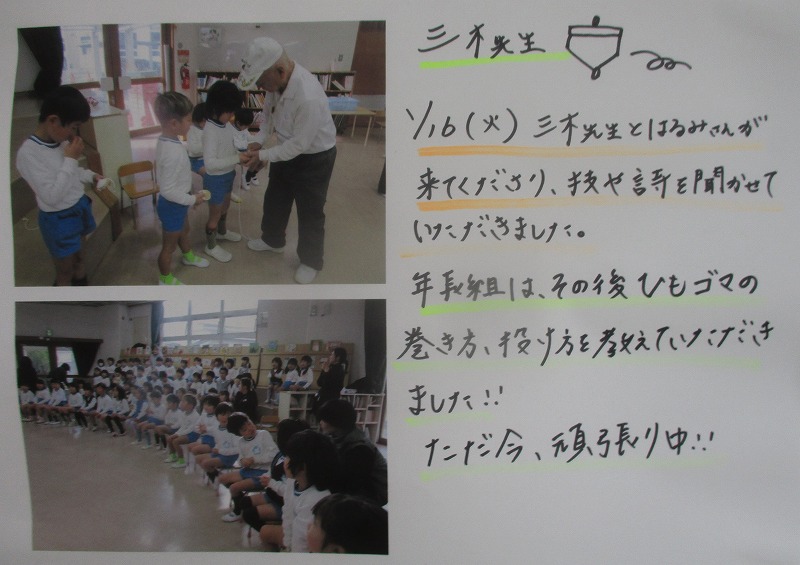 三木先生
1/16(火) 三木先生とはるみさんが
来てくださり、技や詩を聞かせて
いただきました。
年長組は、その後ひもゴマの
巻き方、投げ方を教えていただき
ました!!
ただ今、頑張り中!!